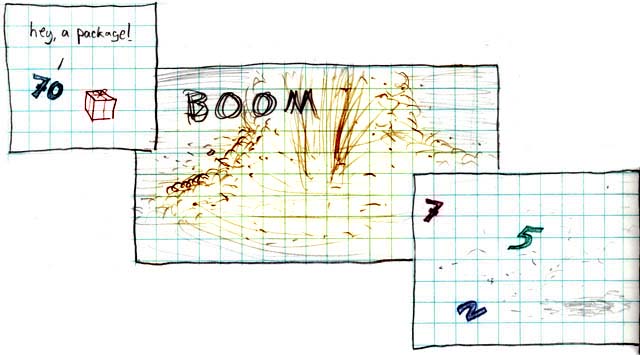 hey, a package!
70
BOOM
7
5
2